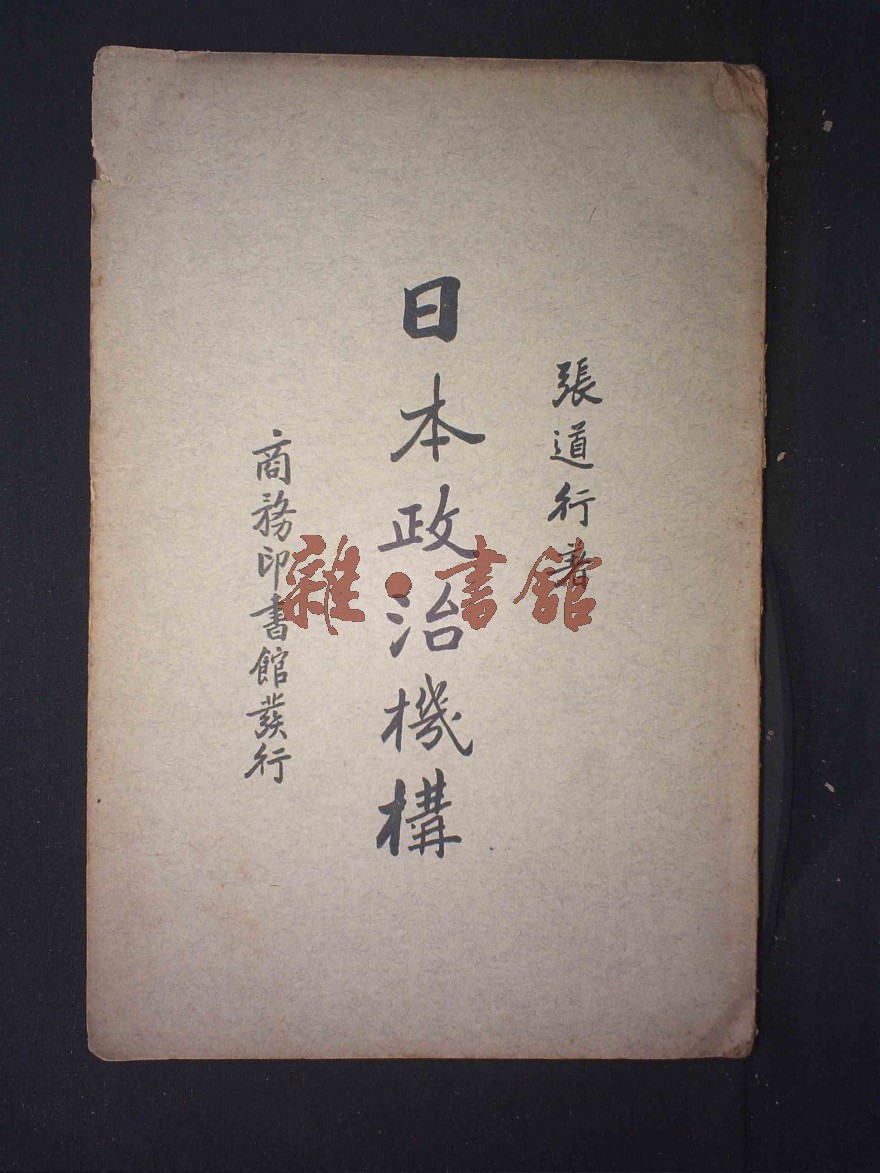 張道行著
日本政治機構
商務印書館發行
雜·書館